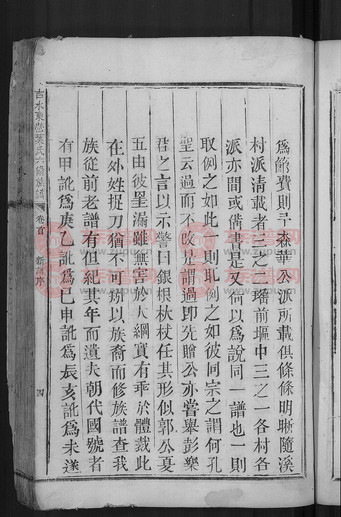 爲節費則予森華公派所載俱條條明晰隨溪
村派淸載者三之二璠前堀中三之一各村各
派亦間或備書是又何以爲說同一譜也一則
取例之如此一則取例之如彼同宗之謂何孔
聖云過而不改是謂過即先贈公亦嘗舉彭樂
君之言以示警曰銀根杕杖任其形似郭公夏
五由彼星漏雖無害於大綱實有乖於體裁此
在外姓捉刀猶不可矧以族裔而修族譜查我
族從前老譜有但紀其年而遺夫朝代國號者
有甲訛爲庚乙訛爲巳申訛爲辰亥訛爲未遂
吉水東營葉氏六修族
卷首
四